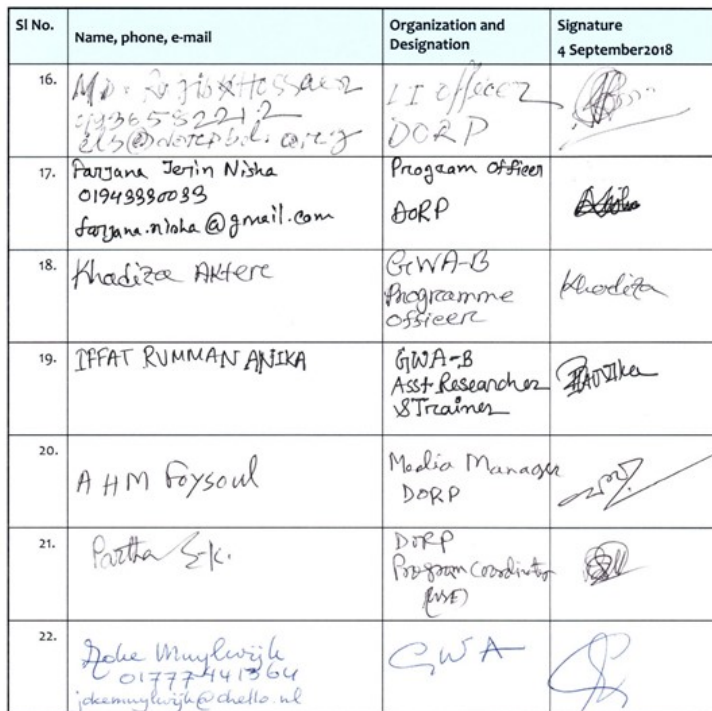 Sl No.
Name, phone, e-mail
Organization and
Designation
Signature
4 September2018
16.
MD.
LI officer
DORP
17.
Farjana Jerin Nisha
01943330033
farjana.nisha@gmail.com
Program Officer
DORP
18.
Khadiza Aktere
GWA-B
Programme
Officer
Khadiza
19.
IFFAT RUMMAN ANIKA
GWA-B
Asst Researcher
& Trainer
20.
AHM Foysoul
Media Manager
DORP
21.
Partha S.K.
DORP
Program Coordinator
22.
Joke Muylwijk
01777441364
jokemuylwijk@chello.nl
GWA